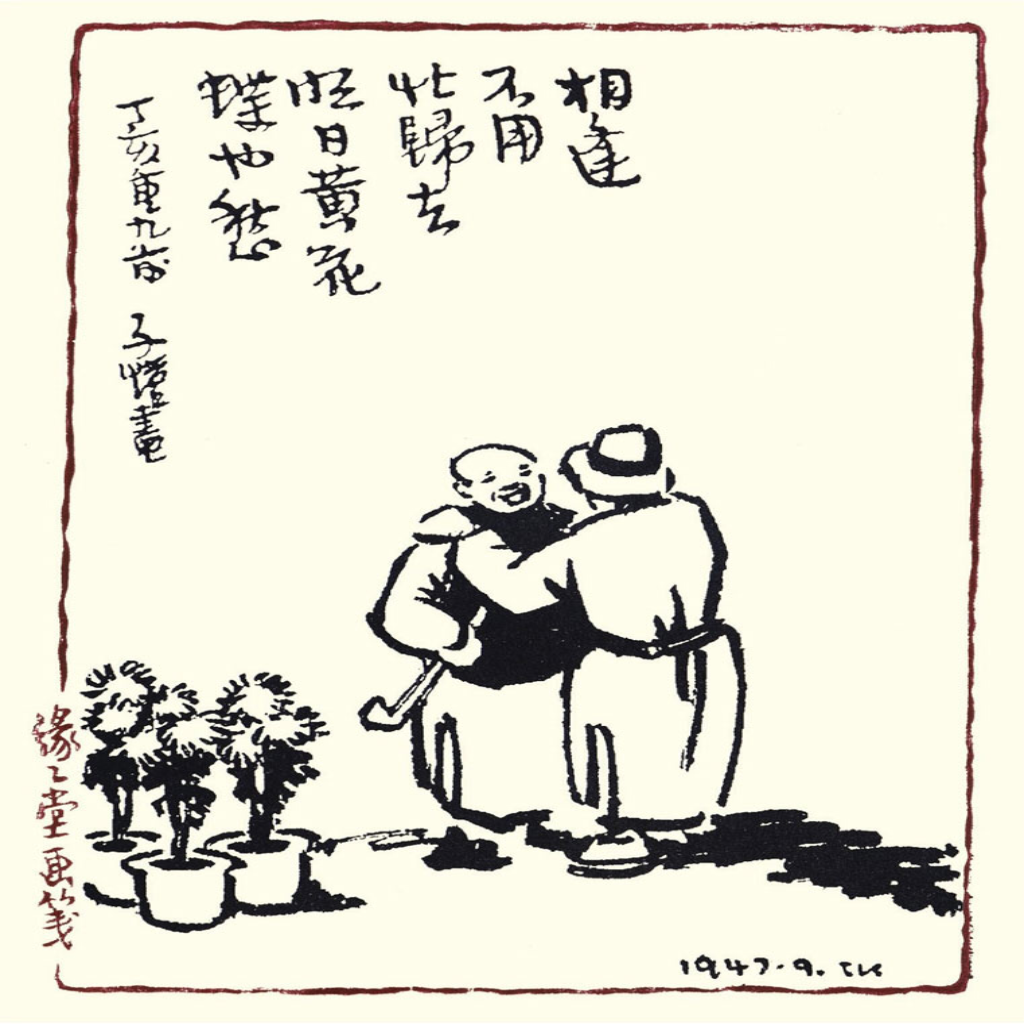 相逢
不用
忙歸去
明日黄花
蝶也愁
丁亥重九前 子愷畫
緣乙堂画箋
1947.9. TK